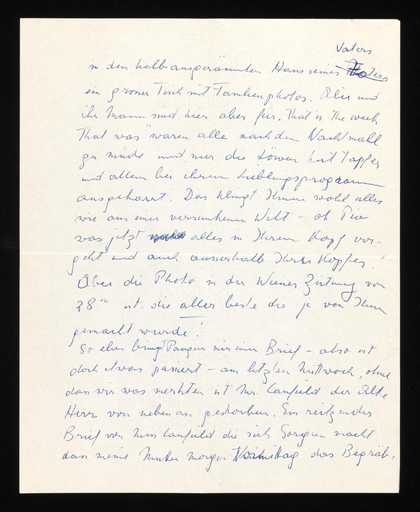 Vaters
in den halb ausgeräumten Haus seines
ein grosser Tisch mit Familienphotos. Alice und
ihr Mann sind hier aber für "That is the week
That was" waren alle nach dem Nachtmahl
zu müde und nur die Löwen hat tapfer
und allein bei ihrem Lieblingsprogramm
ausgeharrt. Das klingt Ihnen wohl alles
wie aus einer versunkenen Welt – ob Sie
was jetzt alles in Ihrem Kopf vor-
geht und auch ausserhalb Ihres Kopfes!
Aber die Photo in der Wiener Zeitung vom
28ten ist die aller beste die je von Ihnen
gemacht wurde!
So eben bringt mir einen Brief – also ist
doch etwas passiert – am letzten Mittwoch, ohne
dass wir was merkten ist Mr. Canfield der alte
Herr von nebenan gestorben. Ein reizender
Brief von Miss Canfield die sich Sorgen macht
dass meine Mutter morgen Vormittag das Begräb-